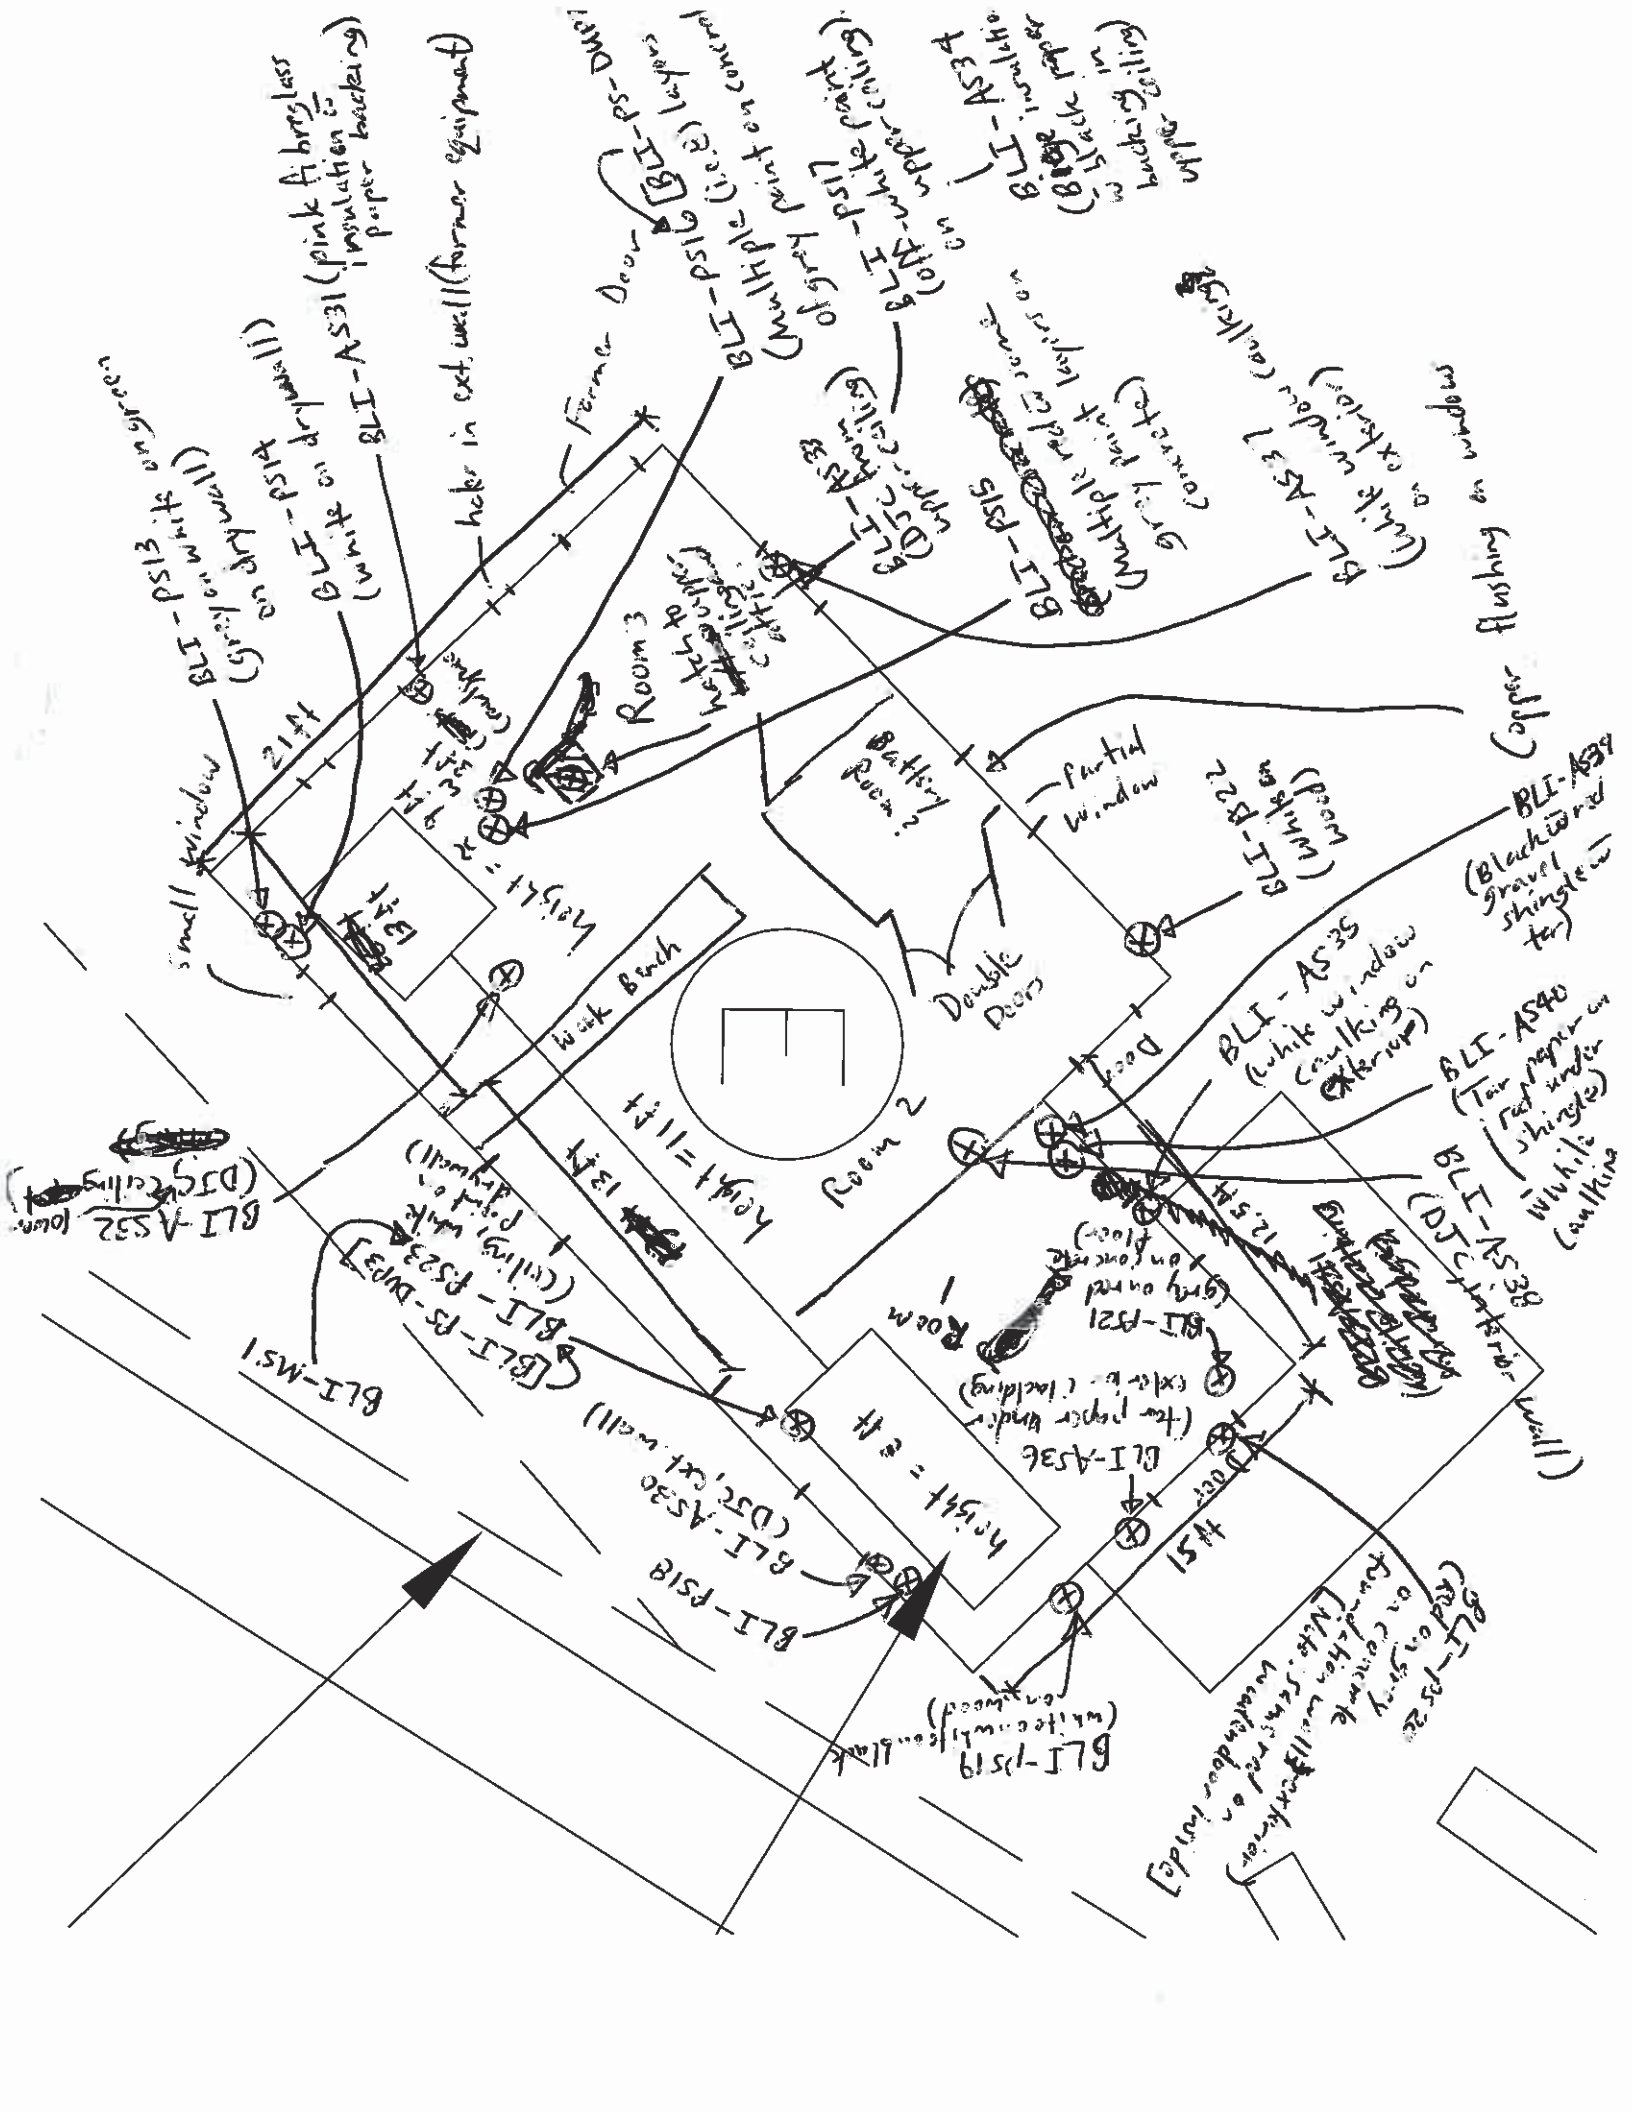 BLI-PS13
(gray on white on green
on drywall)
BLI-PS14
(white on drywall)
BLI-AS31 (pink fibreglass
insulation w
paper backing)
hole in ext. wall (former equipment)
Former Door
BLI-PS16 [BLI-PS-DUP
(Multiple (i.e. 2) layers
of gray paint on concrete
BLI-PS17
(off-white paint
on upper ceiling)
BLI-AS34
(Beige insulation
w black paper
backing in
upper ceiling
BLI-AS33
(DJC from
upper ceiling)
BLI-PS15
(Multiple red w some
gray paint layers on
concrete)
BLI-AS37
(White window caulking
on exterior)
Copper flashing on windows
small window
21ft
13ft
height = 9 ft
Room 3
hatch to
upper
ceiling
attic
Work Bench
Bath
Room?
Partial
Window
Double
Doors
BLI-PS22
(White on
wood)
BLI-AS39
(Black & red
gravel
shingle w
tar)
BLI-AS35
(white window
caulking on
exterior)
BLI-AS40
(Tar paper on
roof under
shingle)
White
caulking
BLI-AS38
(DJC, interior wall)
BLI-AS32
(DJC, ceiling lower)
BLI-MS1
BLI-PS23
(ceiling, white
paint on
drywall)
[BLI-PS-DUP3]
13ft
height = 11 ft
Room 2
E
Door
12.5ft
Room 1
BLI-PS21
(gray on red
on concrete
floor)
BLI-AS36
(tar paper under
exterior cladding)
height = 8 ft
Door
15ft
BLI-AS30
(DJC, ext. wall)
BLI-PS18
BLI-PS19
(white on white on black
on wood)
BLI-PS20
(Red on gray
on concrete
foundation wall exterior)
[Note: same red on
wooden door inside]